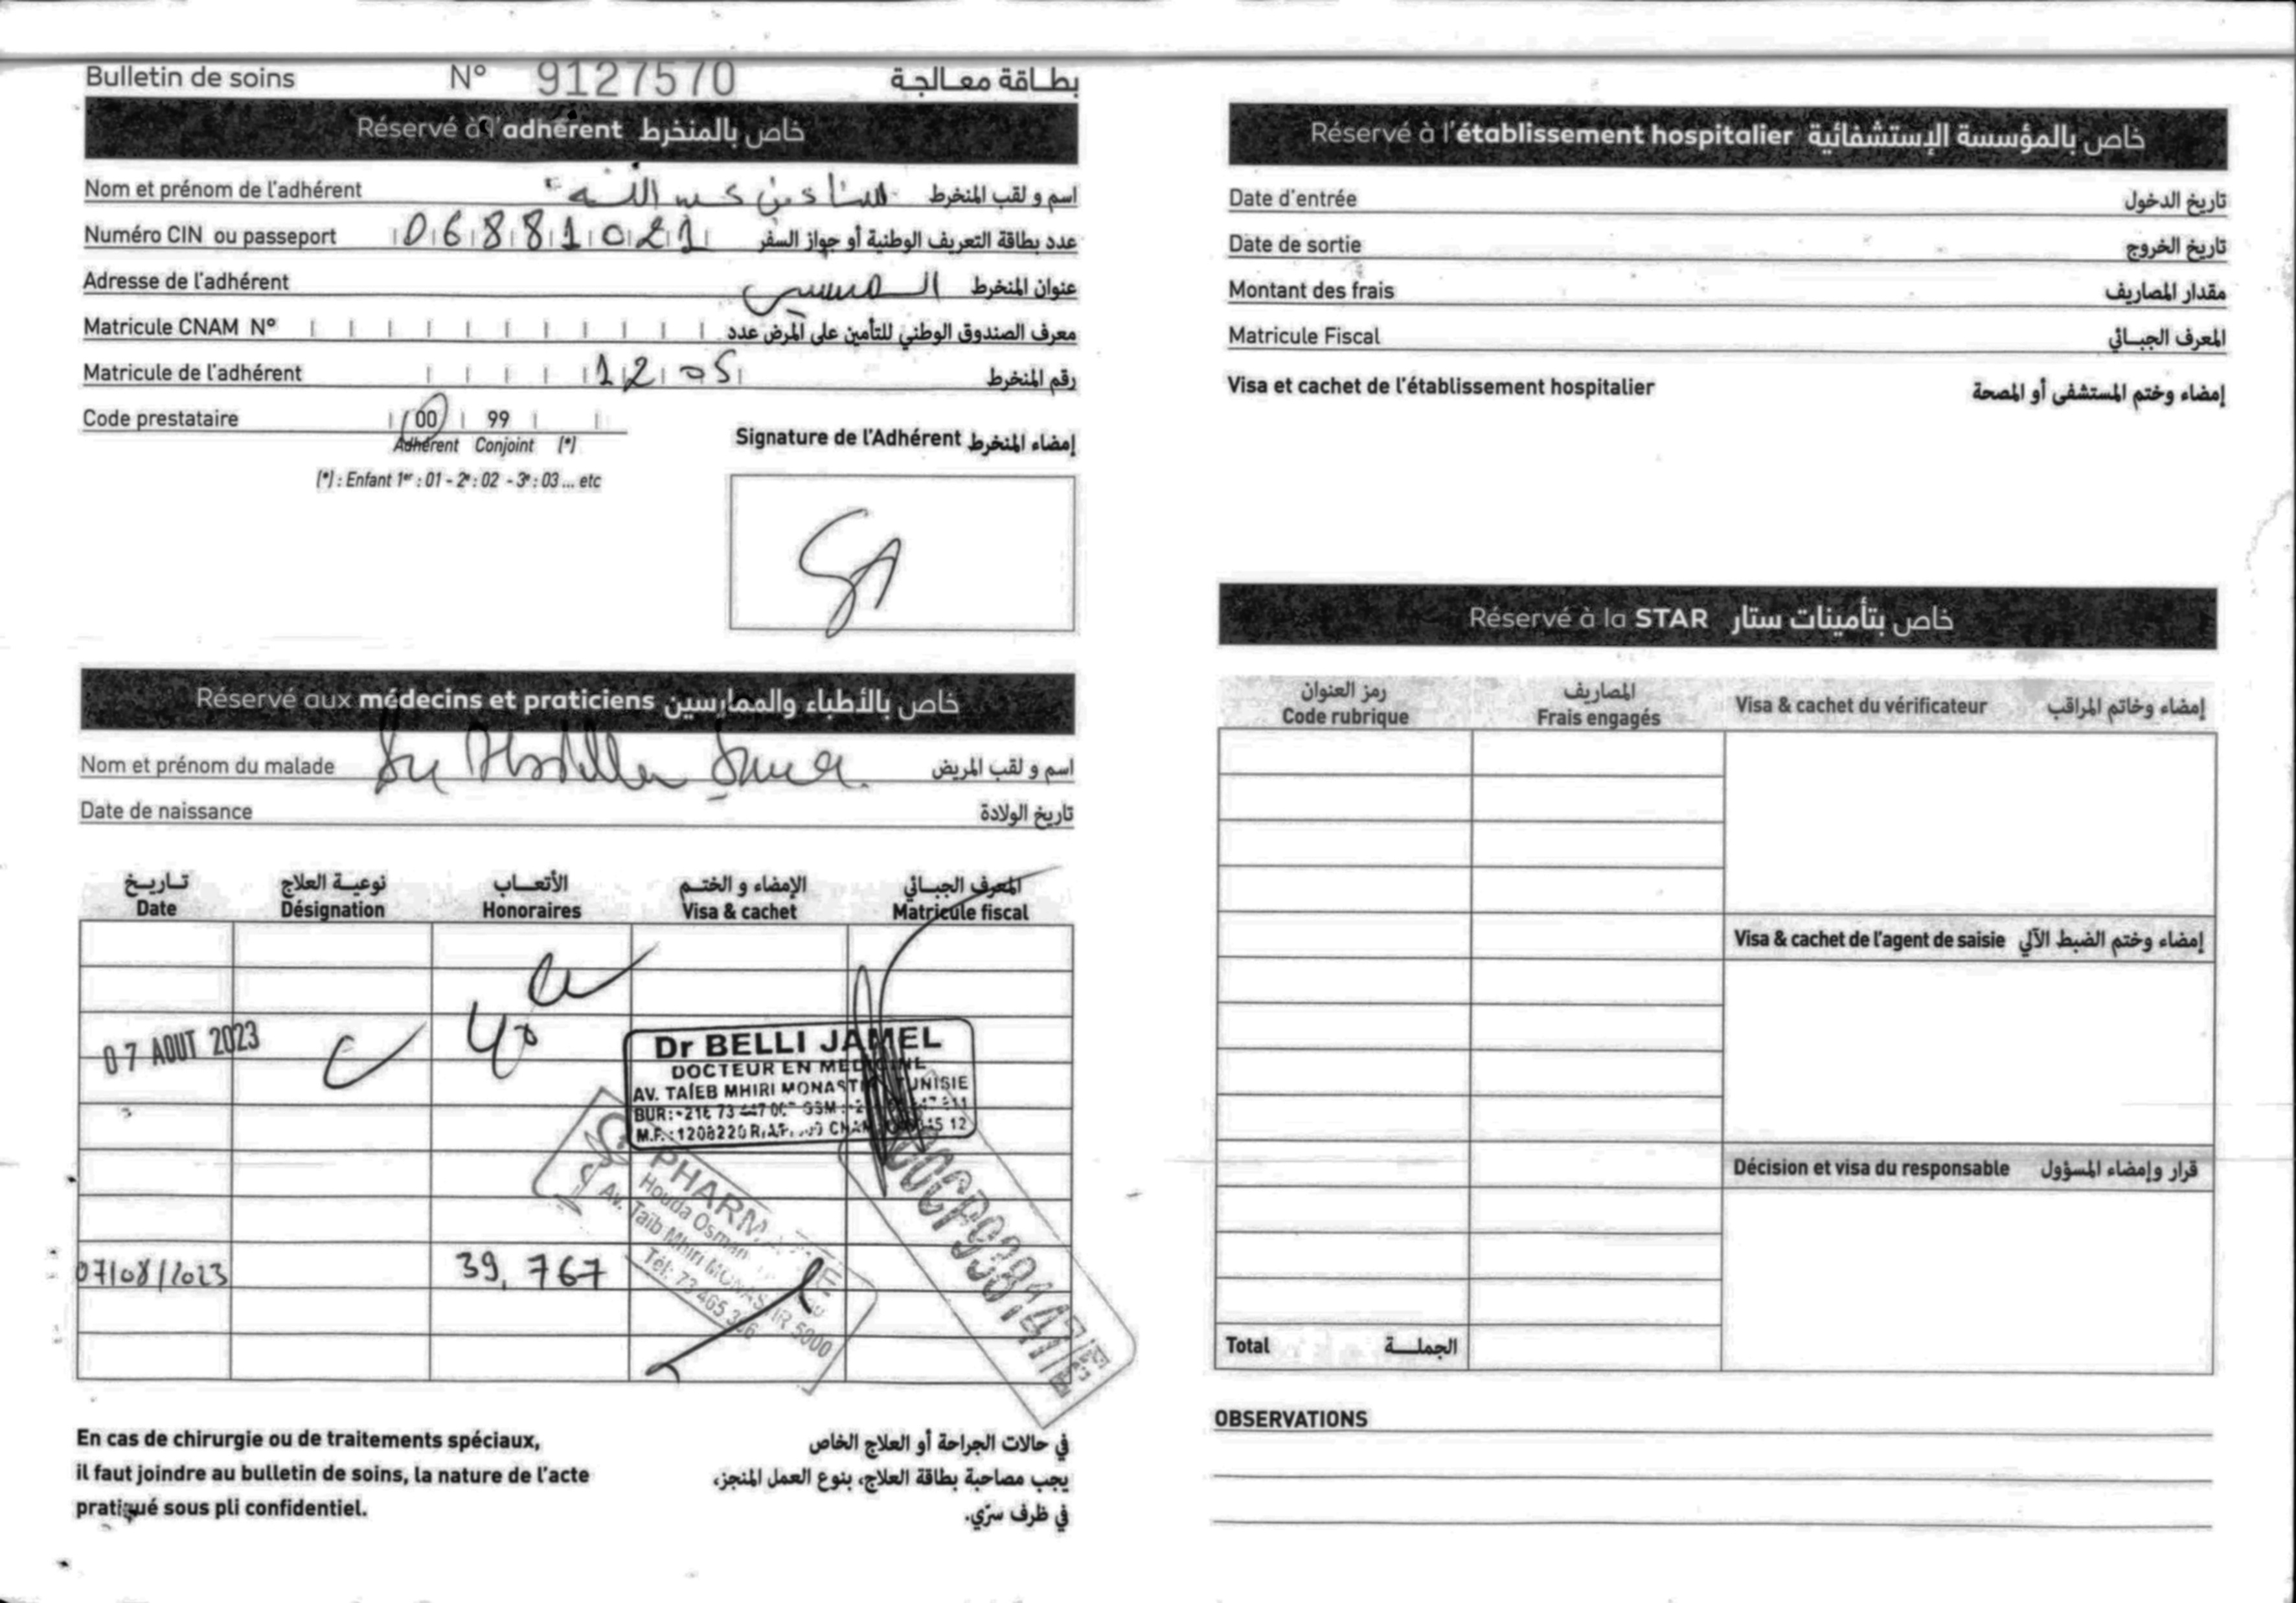 Bulletin de soins N° 9127570 بطاقة معالجة
Réservé à l'adhérent خاص بالمنخرط
Nom et prénom de l'adhérent عبد الله اسم و لقب المنخرط
Numéro CIN ou passeport 06881021 عدد بطاقة التعريف الوطنية أو جواز السفر
Adresse de l'adhérent عنوان المنخرط
Matricule CNAM N° معرف الصندوق الوطني للتأمين على المرض عدد
Matricule de l'adhérent 1205 رقم المنخرط
Code prestataire 00 99
Adhérent Conjoint (*)
(*) : Enfant 1er : 01 - 2e : 02 - 3e : 03 ... etc
Signature de l'Adhérent إمضاء المنخرط
Réservé aux médecins et praticiens خاص بالأطباء والممارسين
Nom et prénom du malade اسم و لقب المريض
Date de naissance تاريخ الولادة
تاريخ نوعية العلاج الأتعاب الإمضاء و الختم المعرف الجبائي
Date Désignation Honoraires Visa & cachet Matricule fiscal
07 AOUT 2023 C 40
Dr BELLI JAMEL
DOCTEUR EN MEDECINE
AV. TAÏEB MHIRI MONASTIR TUNISIE
BUR: +216 73 447 GSM :
M.F. : 1208220
PHARMACIE
Houda Osman
Av. Taïb Mhiri MONASTIR 5000
Tél: 73 465 3
07/08/2023 39,767
En cas de chirurgie ou de traitements spéciaux,
il faut joindre au bulletin de soins, la nature de l'acte
pratiqué sous pli confidentiel.
في حالات الجراحة أو العلاج الخاص
يجب مصاحبة بطاقة العلاج، بنوع العمل المنجز،
في ظرف سرّي.
Réservé à l'établissement hospitalier خاص بالمؤسسة الإستشفائية
Date d'entrée تاريخ الدخول
Date de sortie تاريخ الخروج
Montant des frais مقدار المصاريف
Matricule Fiscal المعرف الجبائي
Visa et cachet de l'établissement hospitalier إمضاء وختم المستشفى أو المصحة
Réservé à la STAR خاص بتأمينات ستار
رمز العنوان المصاريف
Code rubrique Frais engagés Visa & cachet du vérificateur إمضاء وخاتم المراقب
Visa & cachet de l'agent de saisie إمضاء وختم الضبط الآلي
Décision et visa du responsable قرار وإمضاء المسؤول
Total الجملة
OBSERVATIONS